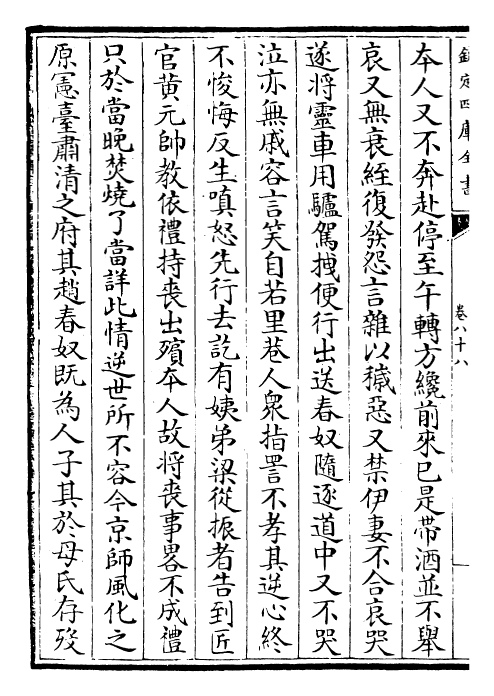 欽定四庫全書
卷八十八
夲人又不奔赴停至午轉方纔前來已是帶酒並不舉
哀又無衰絰復發怨言雜以穢惡又禁伊妻不合哀哭
遂將靈車用驢駕拽便行出送春奴隨逐道中又不哭
泣亦無戚容言笑自若里巷人衆指詈不孝其逆心終
不悛悔反生嗔怒先行去訖有姨弟梁從振者告到匠
官黄元帥教依禮持喪出殯夲人故將喪事畧不成禮
只於當晚焚燒了當詳此情逆世所不容今京師風化之
原憲臺肅清之府其趙春奴既為人子其於母氏存歿